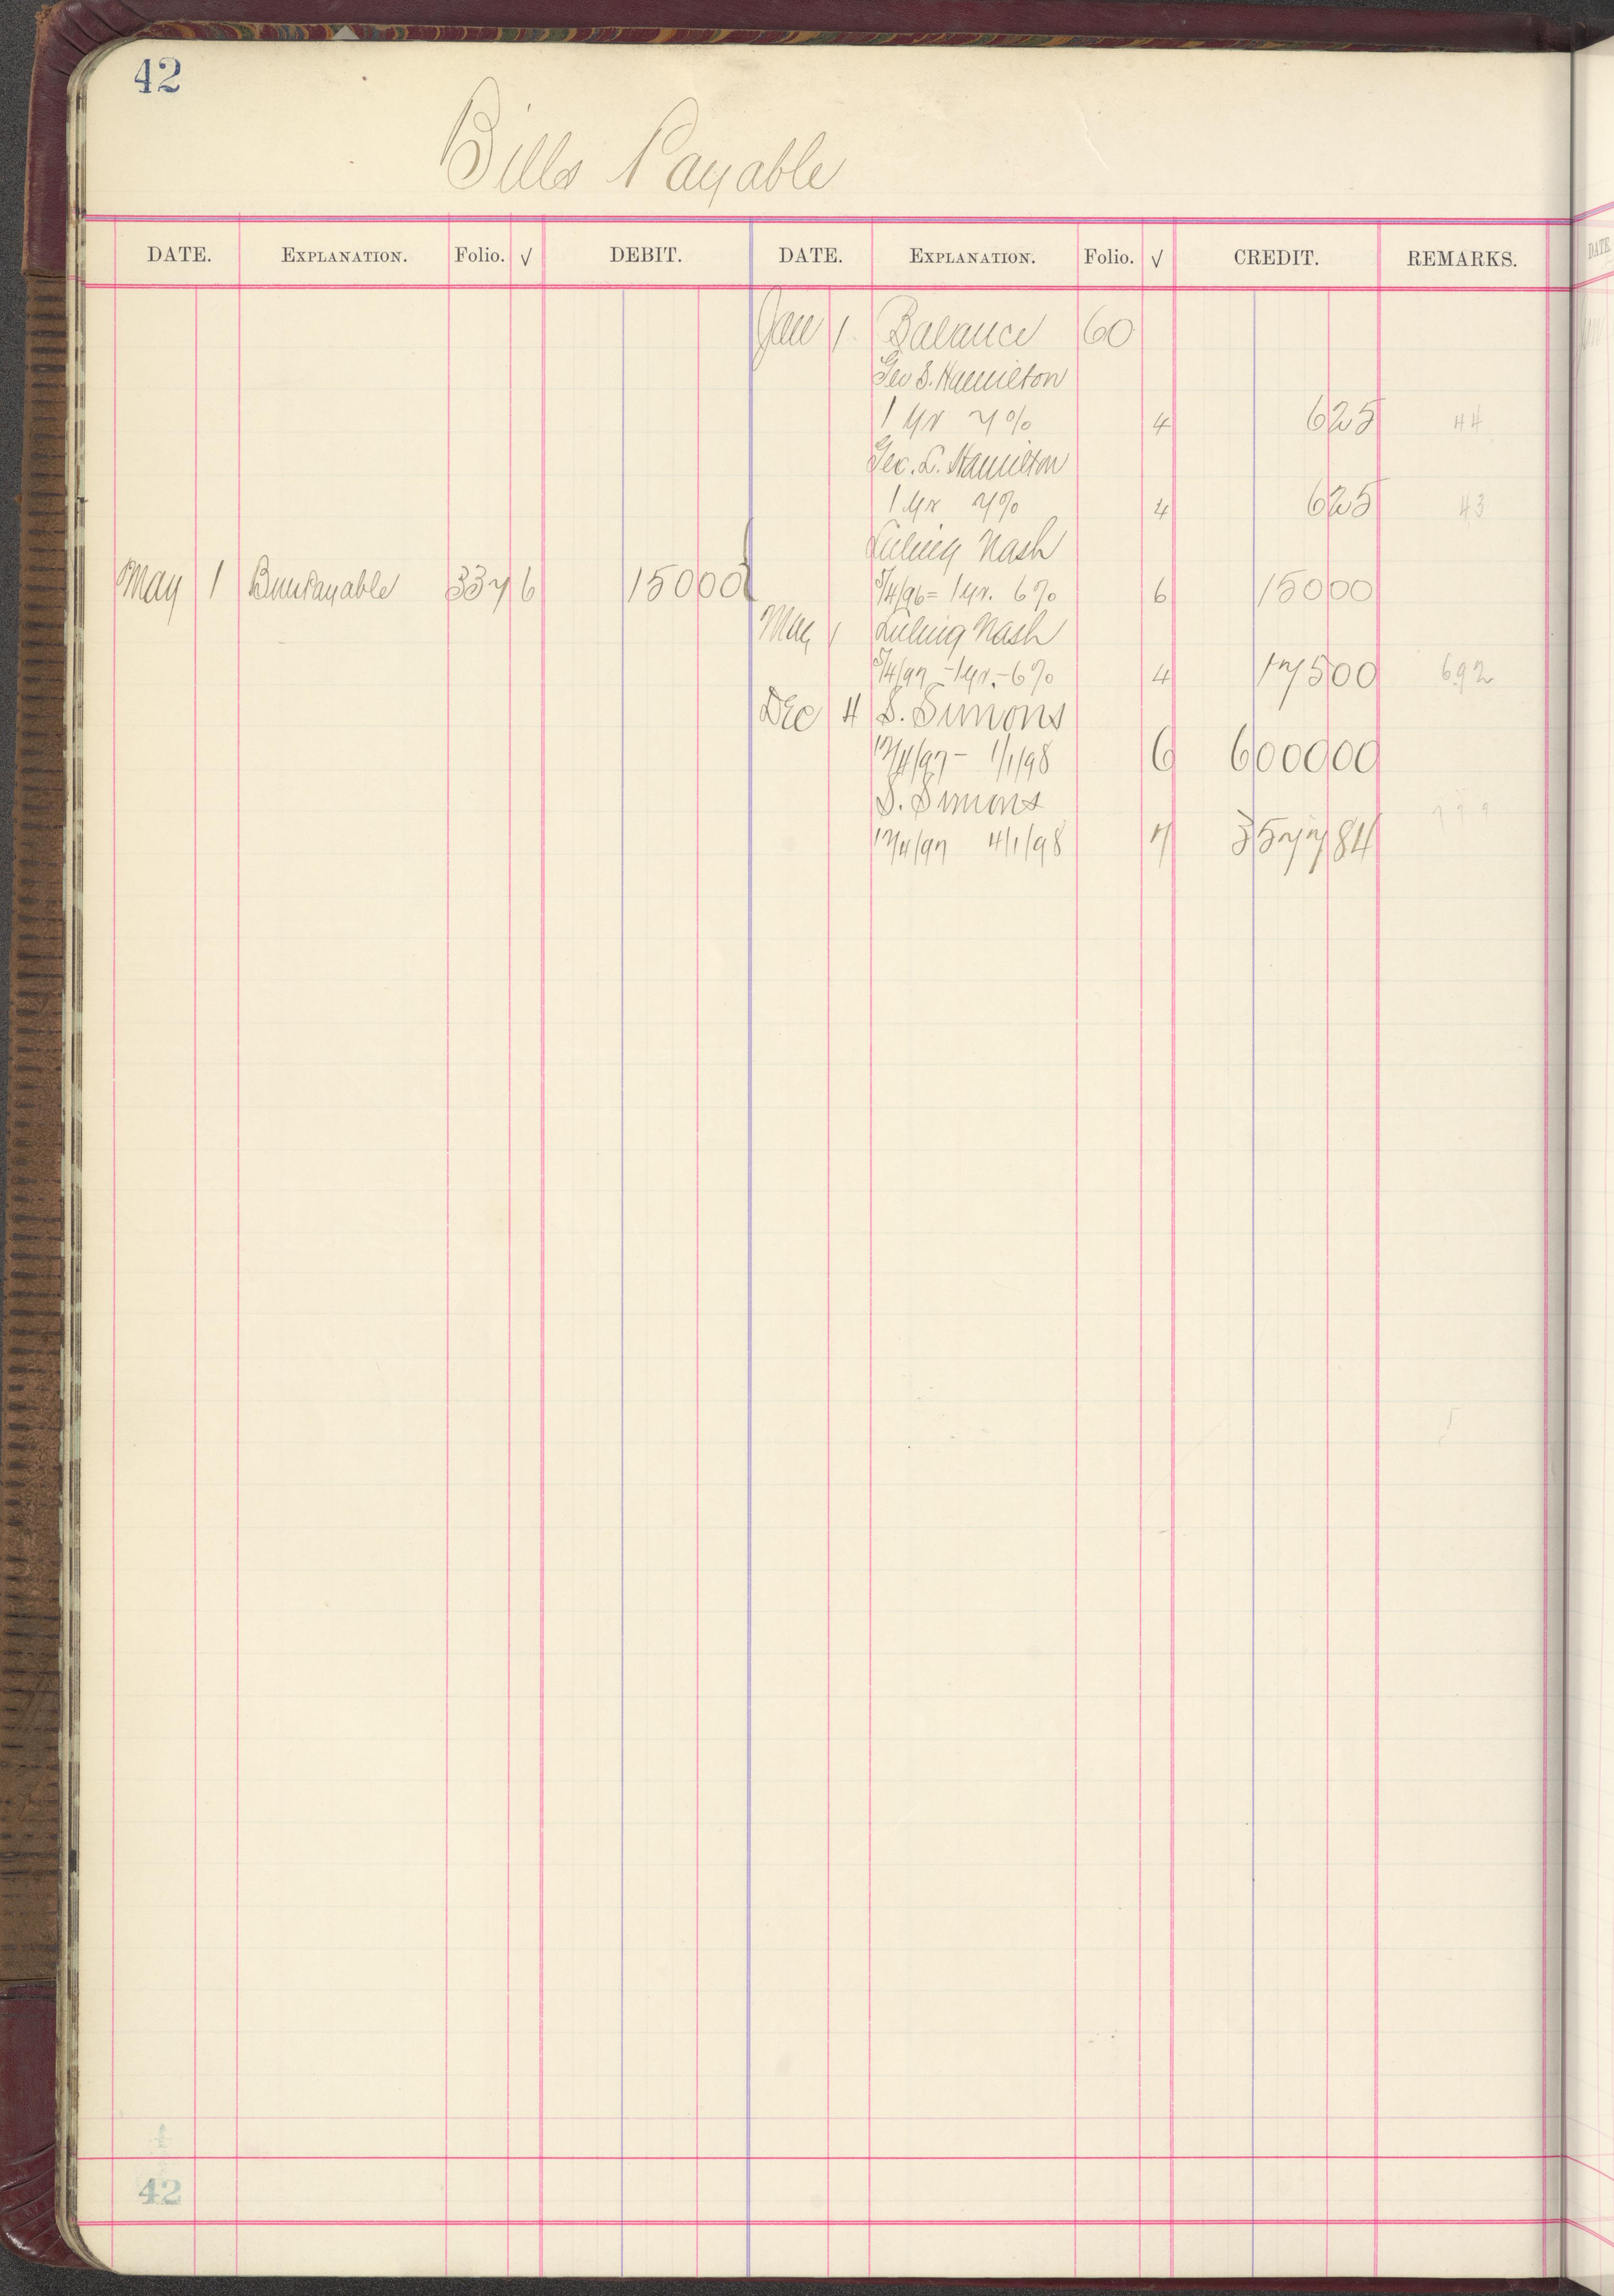 42
Bills Payable
DATE. EXPLANATION. Folio. √ DEBIT. DATE. EXPLANATION. Folio. √ CREDIT. REMARKS.
Jan 1 Balance 60
Geo S. Hamilton
1 yr 7% 4 625 44
Geo. L. Hamilton
1 yr 7% 4 625 43
Luling Nash
May 1 Payable 337 6 15000 5/4/96= 1 yr. 6% 6 15000
May 1 Luling Nash
5/4/97 -1yr.-6% 4 17500 692
Dec 4 S. Simons
12/4/97 - 1/1/98 6 600000
S. Simons
12/4/97 4/1/98 7 357784
42